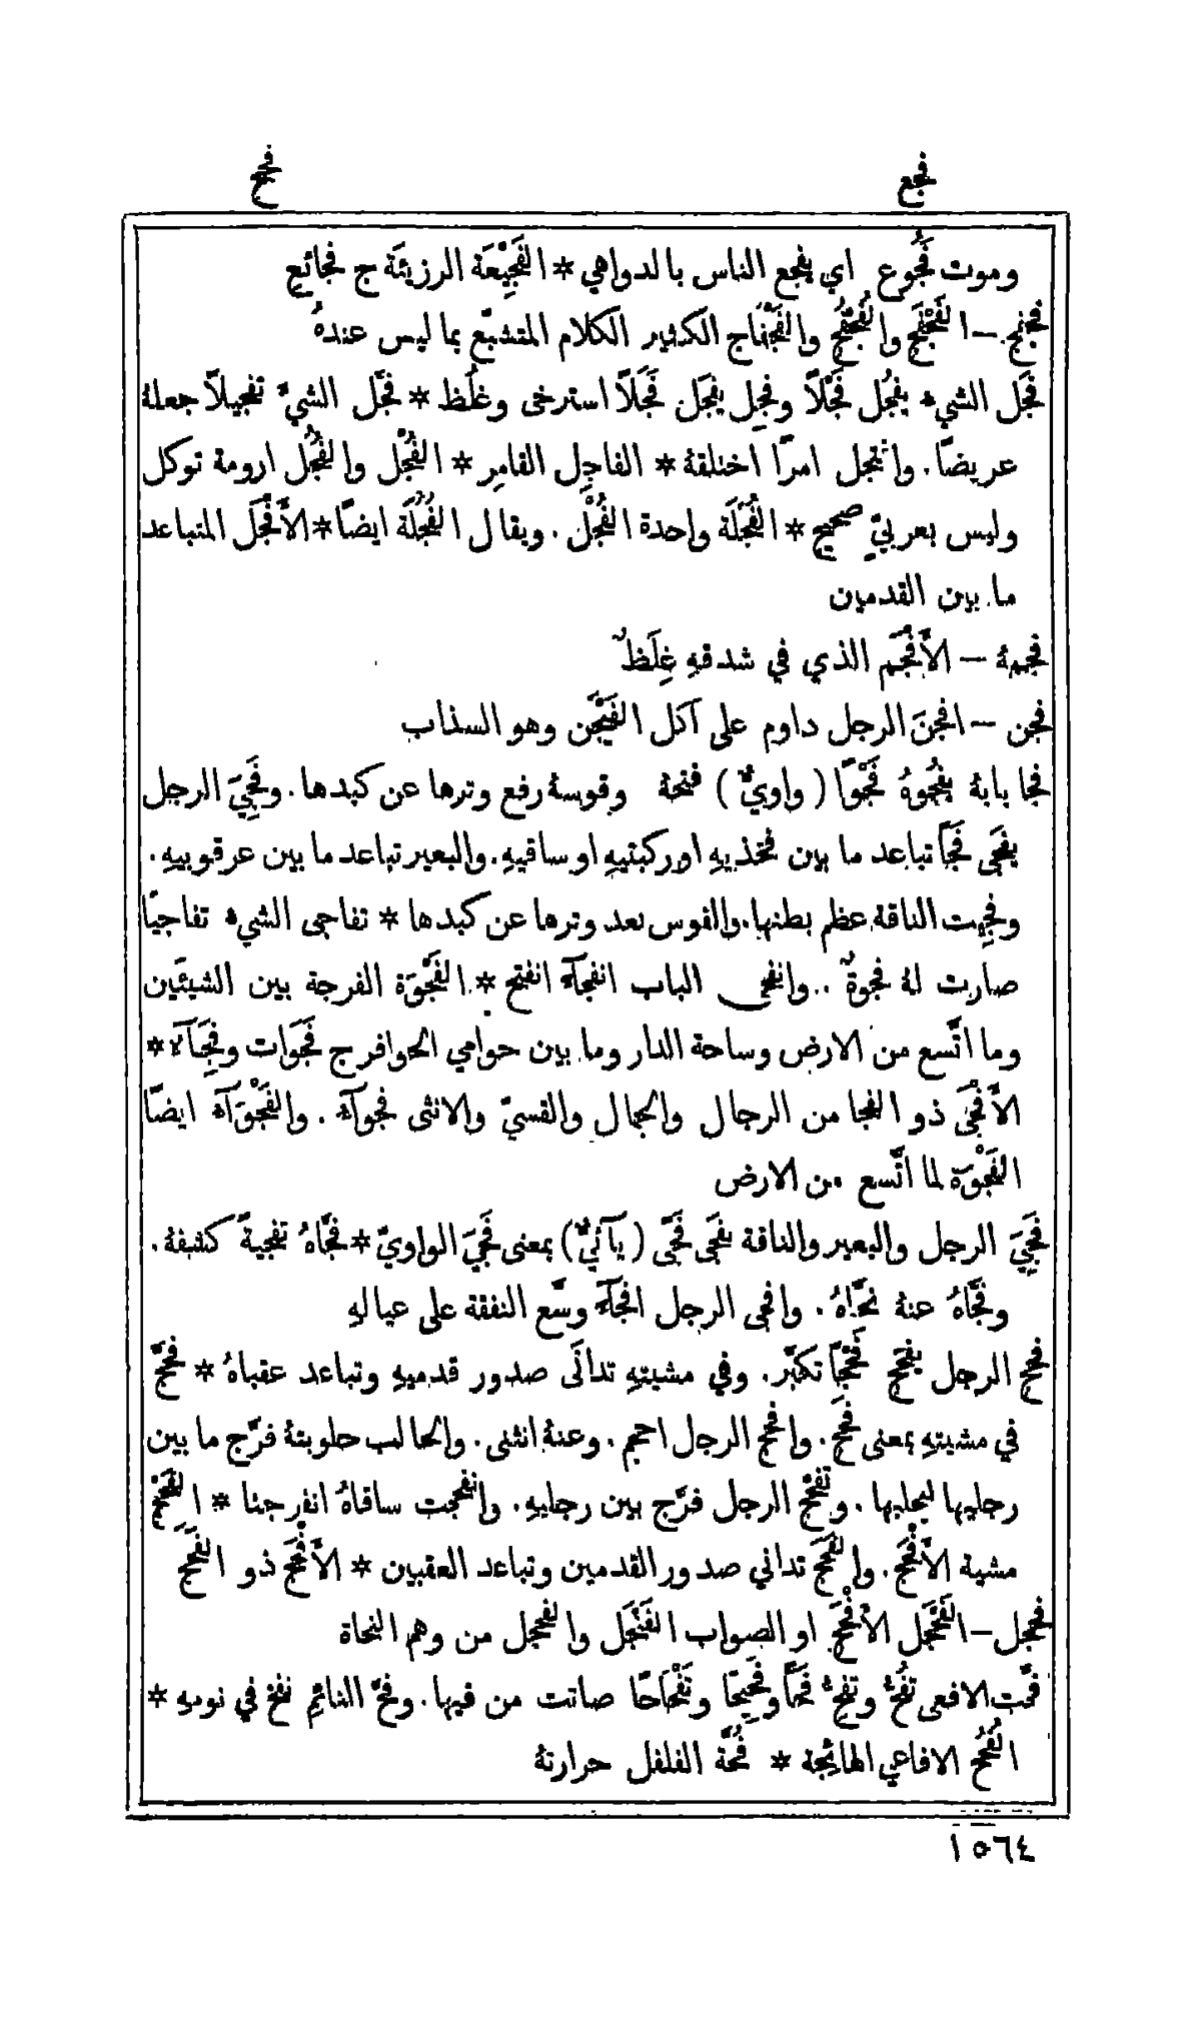 فجع
فحح
وموت فَجُوع اي يفجع الناس بالدواهي * الفَجِيْعَة الرزيئَة ج فجائع
فجفج – الفَجْفَج والفُجْفُج والفَجْفَاج الكثير الكلام المتشبّع بما ليس عندهُ
فجَل الشيء يفجُل فَجْلًا وفجِل يفجَل فَجَلًا استرخى وغلُظ * فجَّل الشيءَ تفجيلًا جعلهُ
عريضًا. وافتجل امرًا اختلقهُ * الفاجِل القامِر * الفُجْل والفُجُل ارومة توكل
وليس بعربيٍّ صحيح * الفُجْلَة واحدة الفُجْل. ويقال الفُجُلَة ايضًا * الأَفْجَل المتباعد
ما بين القدمين
فجمهُ – الأَفْجَم الذي في شدقهِ غِلَظٌ
فجن – افجنَ الرجل داوم على اكل الفَيْجَن وهو السذاب
فجا بابهُ يفجُوهُ فَجْوًا (واويٌّ) فتحهُ وقوسهُ رفع وترها عن كبدها. وفَجِيَ الرجل
يفجَى فَجًا تباعد ما بين فخذيهِ او ركبتيهِ او ساقيهِ. والبعير تباعد ما بين عرقوبيهِ.
وفجِيت الناقة عظم بطنها. والقوس بعد وترها عن كبدها * تفاجى الشيء تفاجيًا
صارت لهُ فجوةٌ.. وانفجى الباب انفجآءً انفتح * الفَجْوَة الفرجة بين الشيئَين
وما اتَّسع من الارض وساحة الدار وما بين حوامي الحوافر ج فَجَوَات وفِجَآء *
الأَفْجَى ذو الفجا من الرجال والجمال والقسيّ والانثى فجوآء. والفَجْوَآء ايضًا
الفَجْوَة لما اتَّسع من الارض
فَجِيَ الرجل والبعير والناقة يفجَى فَجًى (يآئيٌّ) بمعنى فَجِيَ الواويّ * فجَّاهُ تفجيةً كشفهُ.
وفجَّاهُ عنهُ نحَّاهُ. وافجى الرجل افجآءً وسَّع النفقة على عيالهِ
فحج الرجل يفحَج فَحْجًا تكبَّر. وفي مشيتهِ تدانَى صدور قدميهِ وتباعد عقباهُ * فحَّج
في مشيتهِ بمعنى فحَج. وافحج الرجل احجم. وعنهُ انثنى. والحالب حلوبتهُ فرَّج ما بين
رجليها ليحلبها. وتفحَّج الرجل فرَّج بين رجليهِ. وانفحجت ساقاهُ انفرجتا * الفَحْج
مشية الأَفْحَج. والفَحَج تداني صدور القدمين وتباعد العقبين * الأَفْحَج ذو الفَحَج
فحجل – الفَحْجَل الأَفْحَج او الصواب الفَنْجَل والفحجل من وهم النحاة
فحَّت الافعى تفُحّ وتفِحّ فَحًّا وفَحِيحًا وتَفْحَاحًا صاتت من فيها. وفحَّ النائِم نفخ في نومهِ *
الفُحُح الافاعي الهائِجة * فُحَّة الفلفل حرارتهُ
١٥٦٤